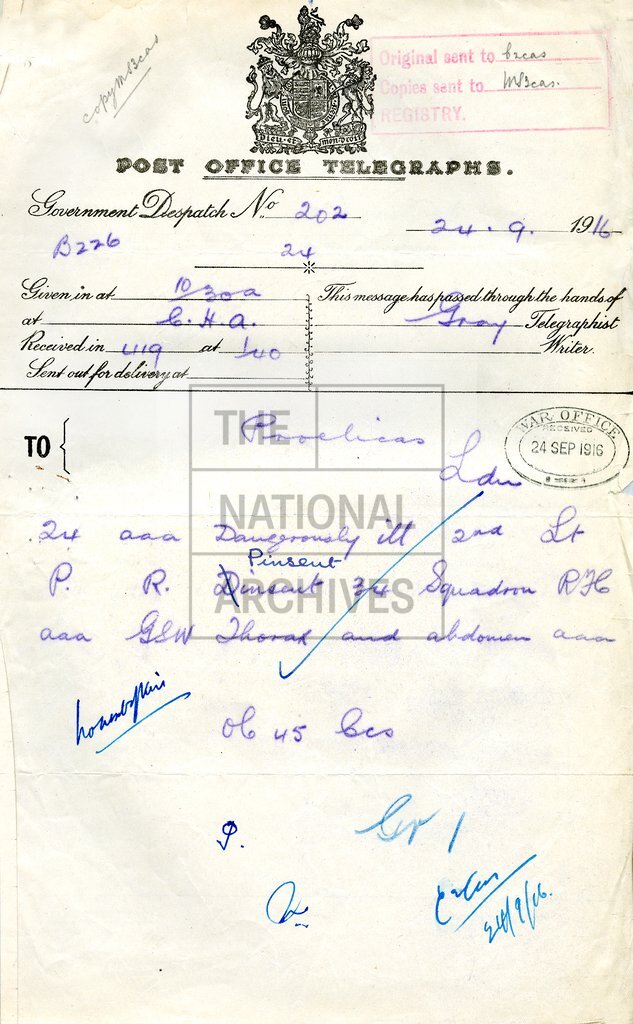 copy MS3cas
Original sent to b2cas
Copies sent to MS3cas.
REGISTRY.
DIEU ET MON DROIT
POST OFFICE TELEGRAPHS.
Government Despatch No. 202
24. 9. 1916
B226
24
Given in at 10/30a
This message has passed through the hands of
at C.H.A.
Gray Telegraphist
Received in 419 at 1/40
Writer.
Sent out for delivery at
TO
Ldn
WAR OFFICE
RECEIVED
24 SEP 1916
THE
NATIONAL
ARCHIVES
24 aaa Dangerously ill 2nd Lt
Pinsent
P. R. Dinsent 34 Squadron RFC
aaa GSW Thorax and abdomen aaa
OC 45 Ccs
P.
24/9/16.